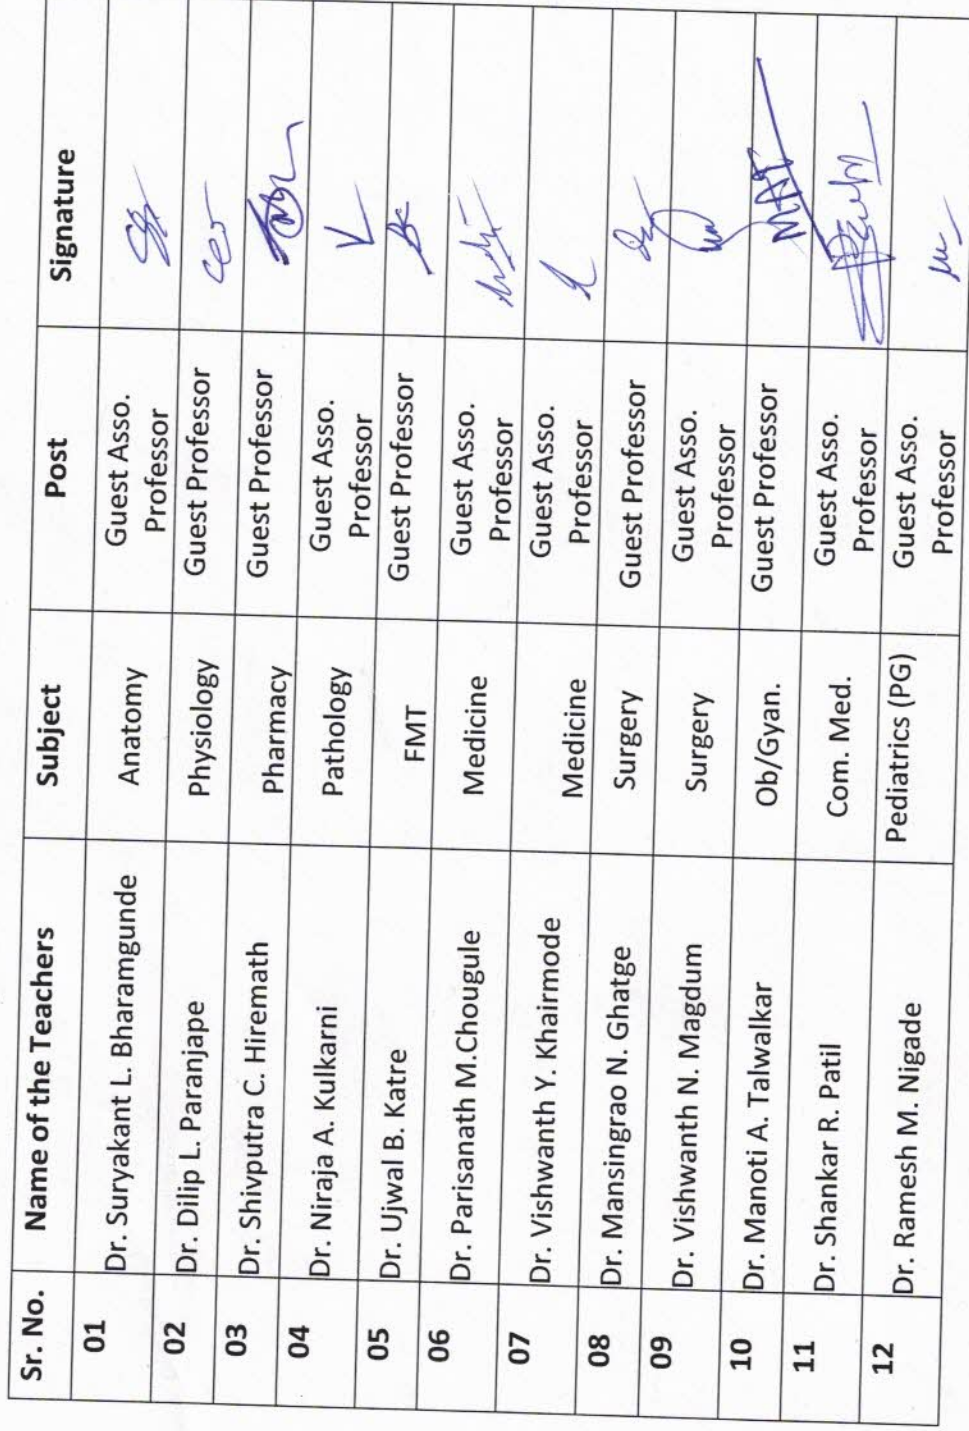 Sr. No. Name of the Teachers Subject Post Signature
01 Dr. Suryakant L. Bharamgunde Anatomy Guest Asso.
Professor
02 Dr. Dilip L. Paranjape Physiology Guest Professor
03 Dr. Shivputra C. Hiremath Pharmacy Guest Professor
04 Dr. Niraja A. Kulkarni Pathology Guest Asso.
Professor
05 Dr. Ujwal B. Katre FMT Guest Professor
06 Dr. Parisanath M.Chougule Medicine Guest Asso.
Professor
07 Dr. Vishwanth Y. Khairmode Medicine Guest Asso.
Professor
08 Dr. Mansingrao N. Ghatge Surgery Guest Professor
09 Dr. Vishwanth N. Magdum Surgery Guest Asso.
Professor
10 Dr. Manoti A. Talwalkar Ob/Gyan. Guest Professor
11 Dr. Shankar R. Patil Com. Med. Guest Asso.
Professor
12 Dr. Ramesh M. Nigade Pediatrics (PG) Guest Asso.
Professor